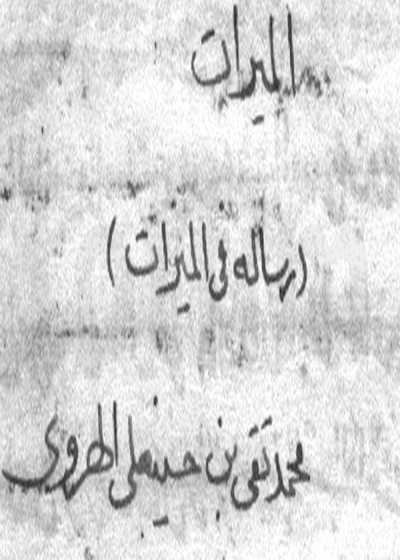 الميراث
(رساله فى الميراث)
محمد تقى بن حسينعلى الهروى